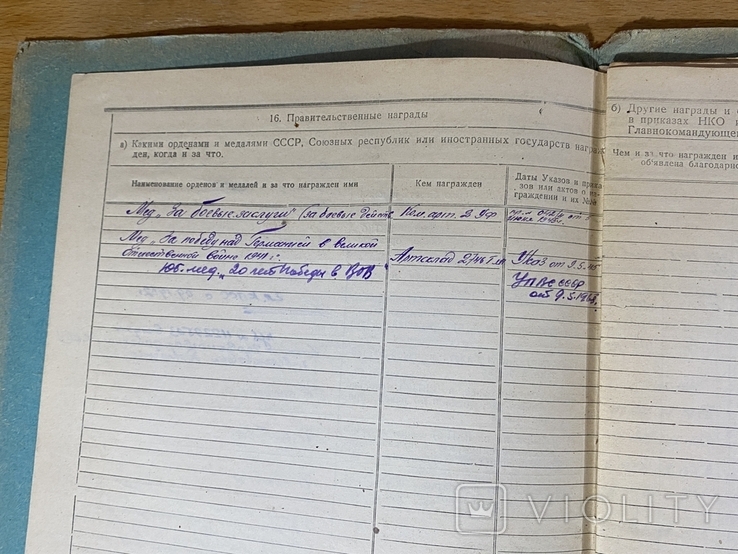 16. Правительственные награды
а) Какими орденами и медалями СССР, Союзных республик или иностранных государств награж
ден, когда и за что.
Наименование орденов и медалей и за что награжден ими
Кем награжден
Даты Указов и прика
зов или актов о на
граждении и их №№
Мед. „За боевые заслуги" (за боевые действ
Ком. арт. 2 Уф
от
Мед „За победу над Германией в великой
Отечественной войне 1941 г.
Артсклад
Указ от 9.5.45
Юб. мед. „20 лет Победы в ВОВ"
УПВС СССР
от 9.5.
б) Другие награды и
в приказах НКО и
Главнокомандующе
Чем и за что награжден и
объявлена благодарно
VIOLITY